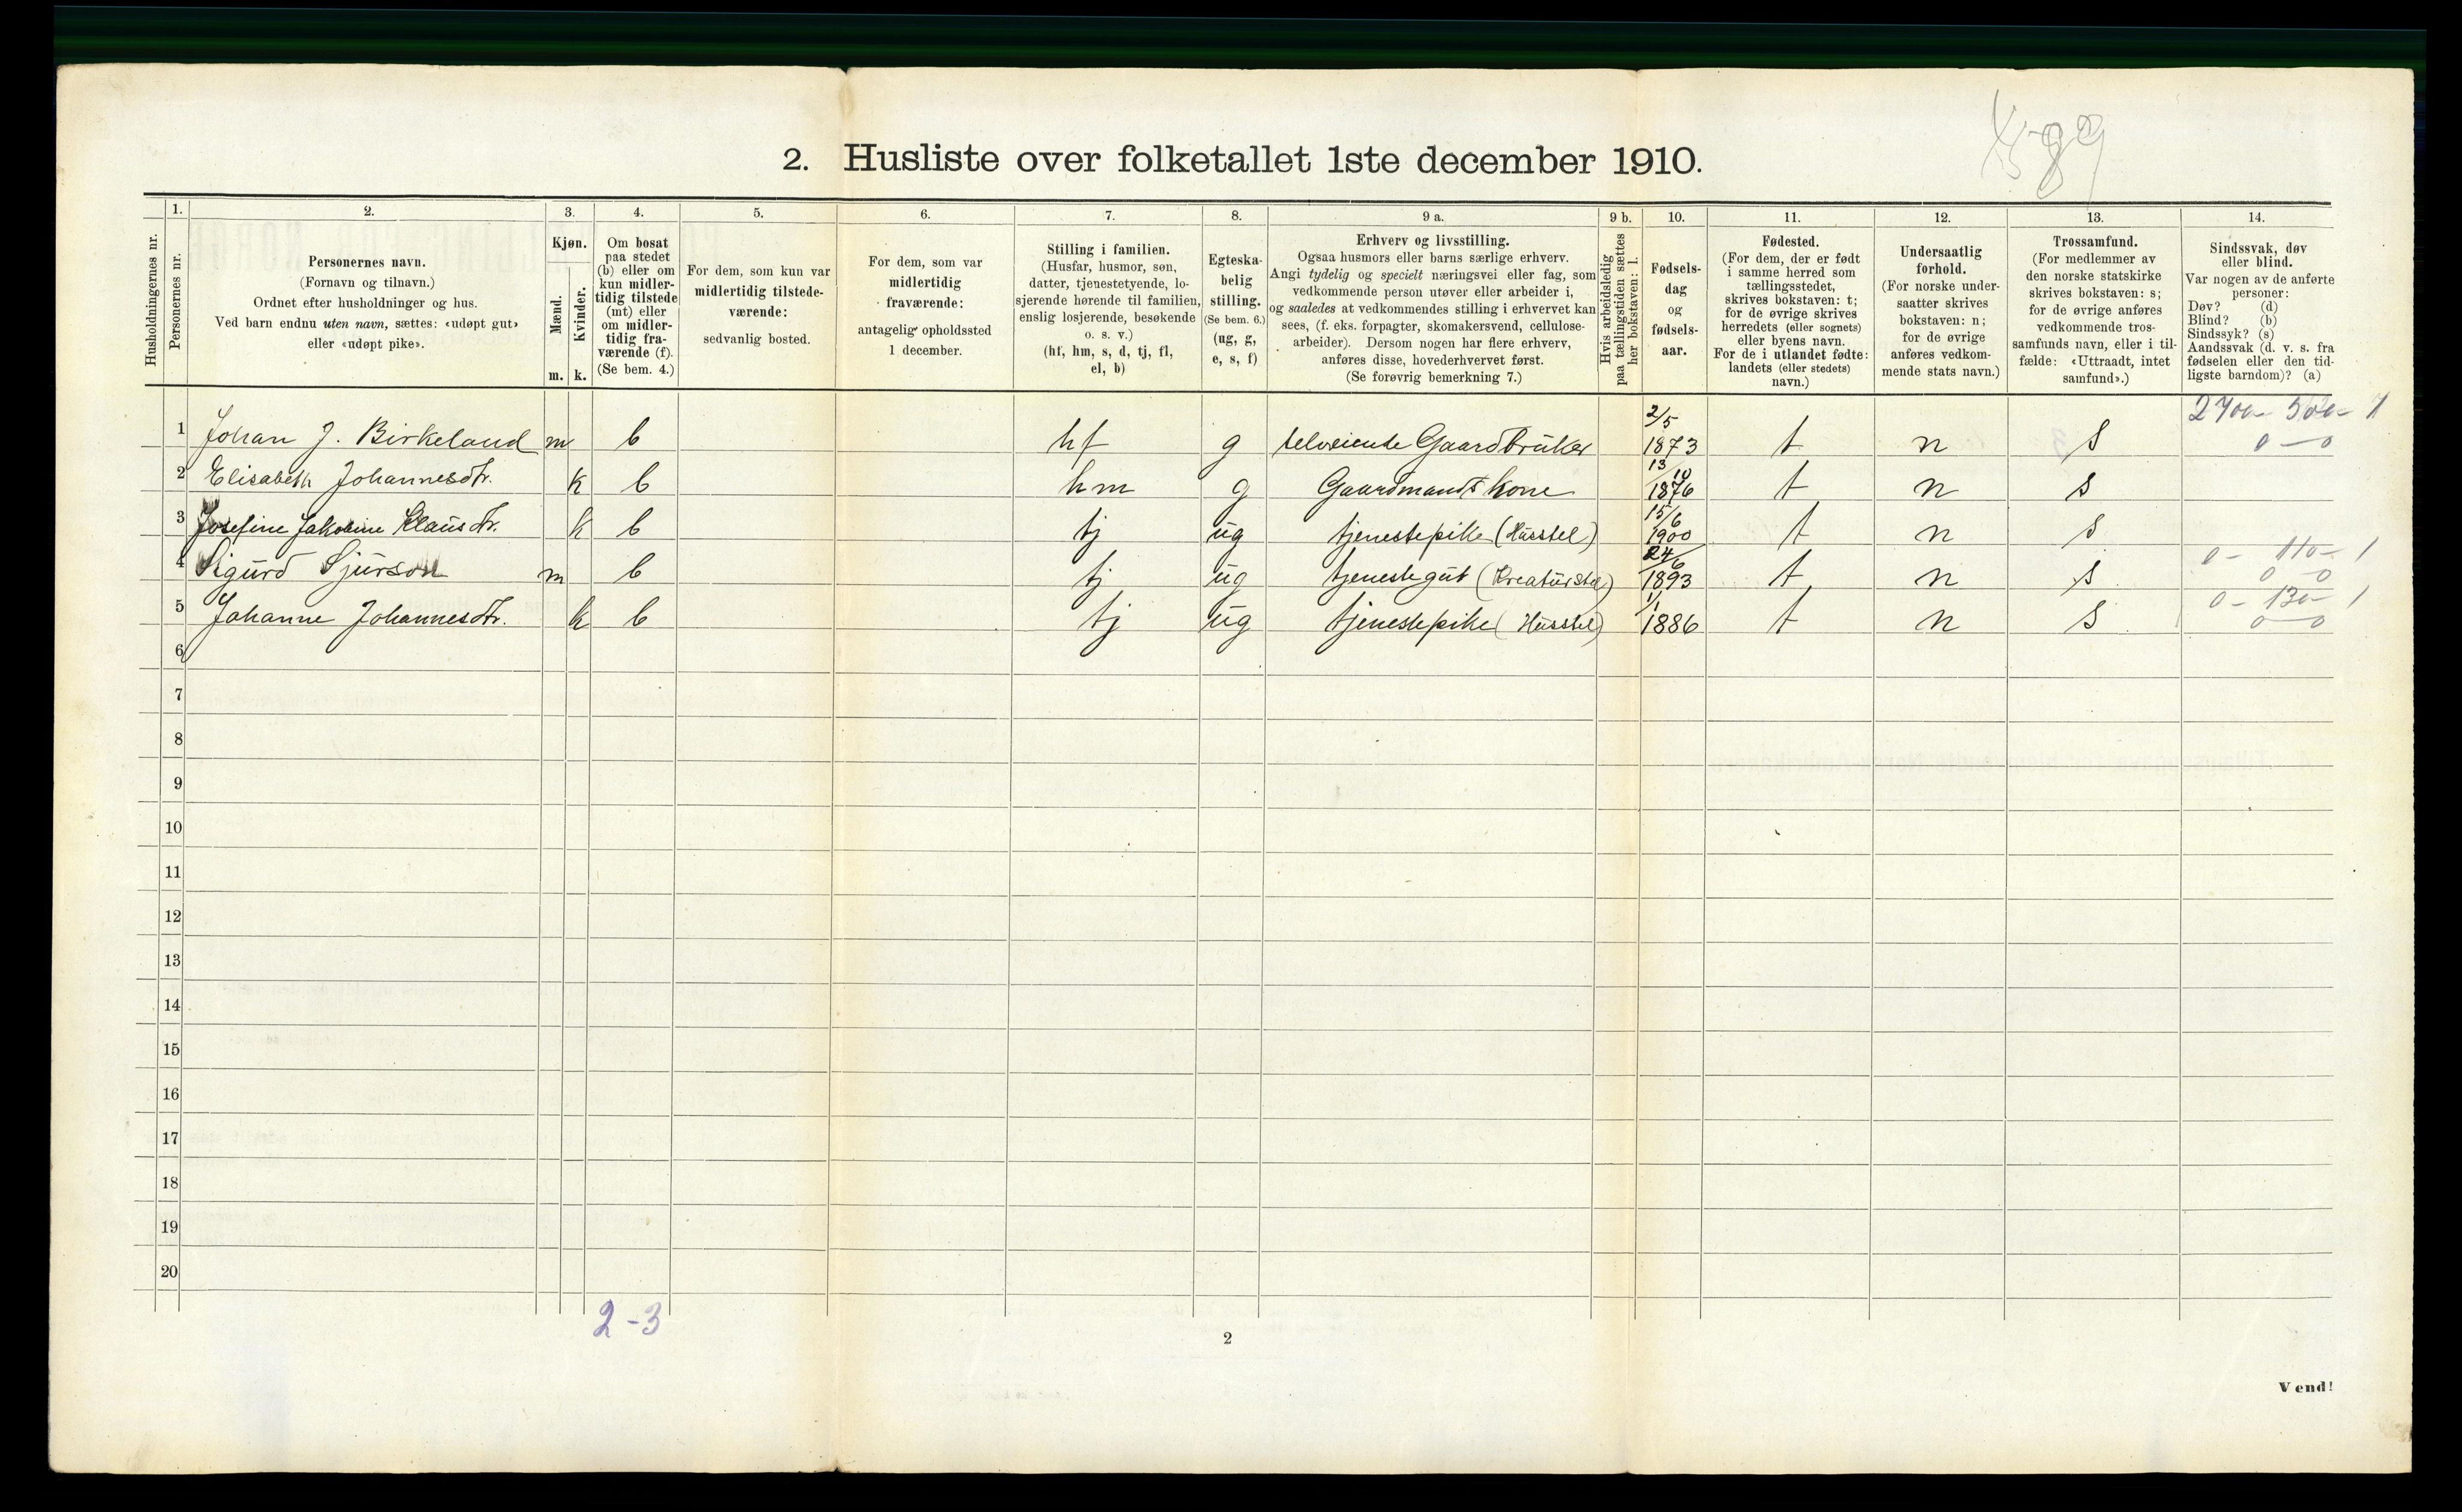 2. Husliste over folketallet 1ste december 1910.
Husholdningernes nr.
1.
Personernes nr.
2.
Personernes navn.
(Fornavn og tilnavn.)
Ordnet efter husholdninger og hus.
Ved barn endnu uten navn, sættes: «udøpt gut»
eller «udøpt pike».
3.
Kjøn.
Mænd.
Kvinder.
m. k.
4.
Om bosat
paa stedet
(b) eller om
kun midler-
tidig tilstede
(mt) eller
om midler-
tidig fra-
værende (f).
(Se bem. 4.)
5.
For dem, som kun var
midlertidig tilstede-
værende:
sedvanlig bosted.
6.
For dem, som var
midlertidig
fraværende:
antagelig opholdssted
1 december.
7.
Stilling i familien.
(Husfar, husmor, søn,
datter, tjenestetyende, lo-
sjerende hørende til familien,
enslig losjerende, besøkende
o. s. v.)
(hf, hm, s, d, tj, fl,
el, b)
8.
Egteska-
belig
stilling.
(Se bem. 6.)
(ug, g,
e, s, f)
9 a.
Erhverv og livsstilling.
Ogsaa husmors eller barns særlige erhverv.
Angi tydelig og specielt næringsvei eller fag, som
vedkommende person utøver eller arbeider i,
og saaledes at vedkommendes stilling i erhvervet kan
sees, (f. eks. forpagter, skomakersvend, cellulose-
arbeider). Dersom nogen har flere erhverv,
anføres disse, hovederhvervet først.
(Se forøvrig bemerkning 7.)
9 b.
Hvis arbeidsledig
paa tællingstiden sættes
her bokstaven: l.
10.
Fødsels-
dag
og
fødsels-
aar.
11.
Fødested.
(For dem, der er født
i samme herred som
tællingsstedet,
skrives bokstaven: t;
for de øvrige skrives
herredets (eller sognets)
eller byens navn.
For de i utlandet fødte:
landets (eller stedets)
navn.)
12.
Undersaatlig
forhold.
(For norske under-
saatter skrives
bokstaven: n;
for de øvrige
anføres vedkom-
mende stats navn.)
13.
Trossamfund.
(For medlemmer av
den norske statskirke
skrives bokstaven: s;
for de øvrige anføres
vedkommende tros-
samfunds navn, eller i til-
fælde: «Uttraadt, intet
samfund».)
14.
Sindssvak, døv
eller blind.
Var nogen av de anførte
personer:
Døv? (d)
Blind? (b)
Sindssyk? (s)
Aandssvak (d. v. s. fra
fødselen eller den tid-
ligste barndom)? (a)
1 Johan J. Birkeland m b hf g selveiende Gaardbruker 2/5 1873 t n s 2700 - 500 - 1
0 — 0
2 Elisabeth Johannesdtr. k b hm g Gaardmands kone 13/10 1876 t n s
3 Josefine Jakobine Klausdtr. k b tj ug tjenestepike (Husstel) 15/6 1900 t n s
4 Sigurd Sjurson m b tj ug tjenestegut (Kreaturstel) 24/6 1893 t n s 0 - 110 - 1
0 — 0
5 Johanne Johannesdtr. k b tj ug tjenestepike (Husstel) 1/1 1886 t n s 0 - 130 - 1
0 — 0
6
7
8
9
10
11
12
13
14
15
16
17
18
19
20
2-3
2
Vend!